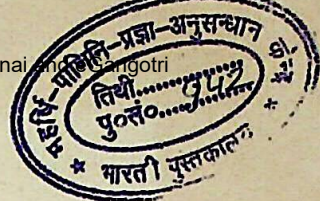 nai and eGangotri
महर्षि-पाणिनि-प्रज्ञा-अनुसन्धान
तिथी..................
पु०सं०....942........
* भारती पुस्तकालय *